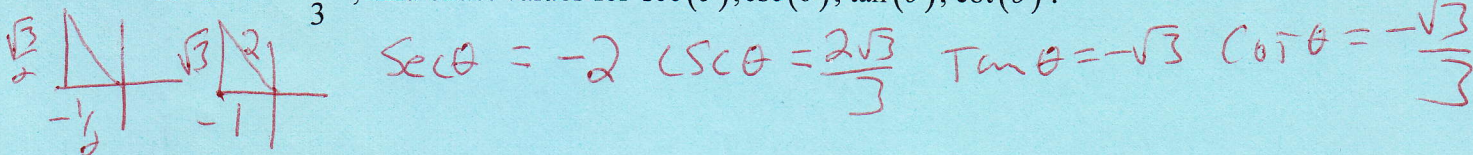 3
√3/2 -1/2 √3 2 -1 Secθ = -2 cscθ = 2√3/3 Tanθ = -√3 Cotθ = -√3/3